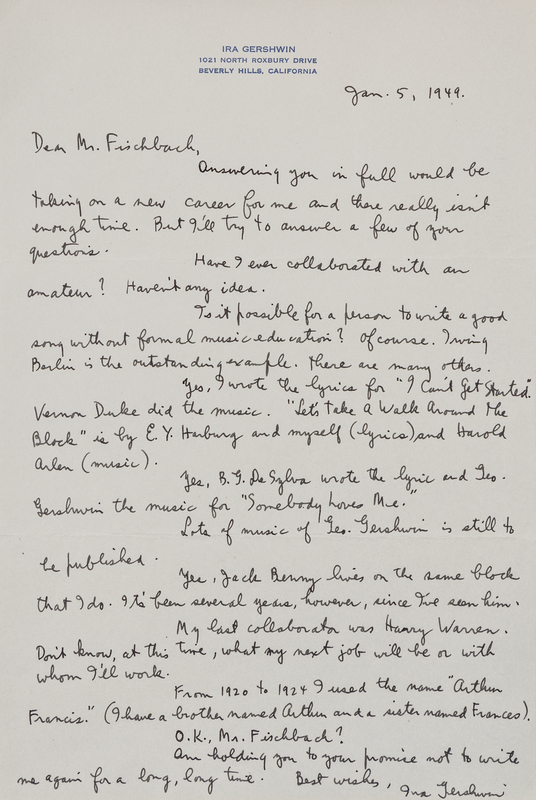 IRA GERSHWIN
1021 NORTH ROXBURY DRIVE
BEVERLY HILLS, CALIFORNIA
Jan. 5, 1949.
Dear Mr. Fischbach,
Answering you in full would be
taking on a new career for me and there really isn't
enough time. But I'll try to answer a few of your
questions.
Have I ever collaborated with an
amateur? Haven't any idea.
Is it possible for a person to write a good
song without formal music education? Of course. Irving
Berlin is the outstanding example. There are many others.
Yes, I wrote the lyrics for "I Can't Get Started".
Vernon Duke did the music. "Let's Take A Walk Around the
Block" is by E. Y. Harburg and myself (lyrics) and Harold
Arlen (music).
Yes, B. G. De Sylva wrote the lyric and Geo.
Gershwin the music for "Somebody Loves Me."
Lots of music of Geo. Gershwin is still to
be published.
Yes, Jack Benny lives on the same block
that I do. It's been several years, however, since I've seen him.
My last collaborator was Harry Warren.
Don't know, at this time, what my next job will be or with
whom I'll work.
From 1920 to 1924 I used the name "Arthur
Francis." (I have a brother named Arthur and a sister named Frances).
O.K., Mr. Fischbach?
Am holding you to your promise not to write
me again for a long, long time. Best wishes,
Ira Gershwin